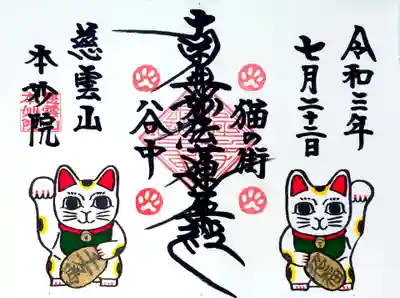 令和三年
七月二十二日
猫の街
南無妙法蓮華経
谷中
慈雲山
本妙院